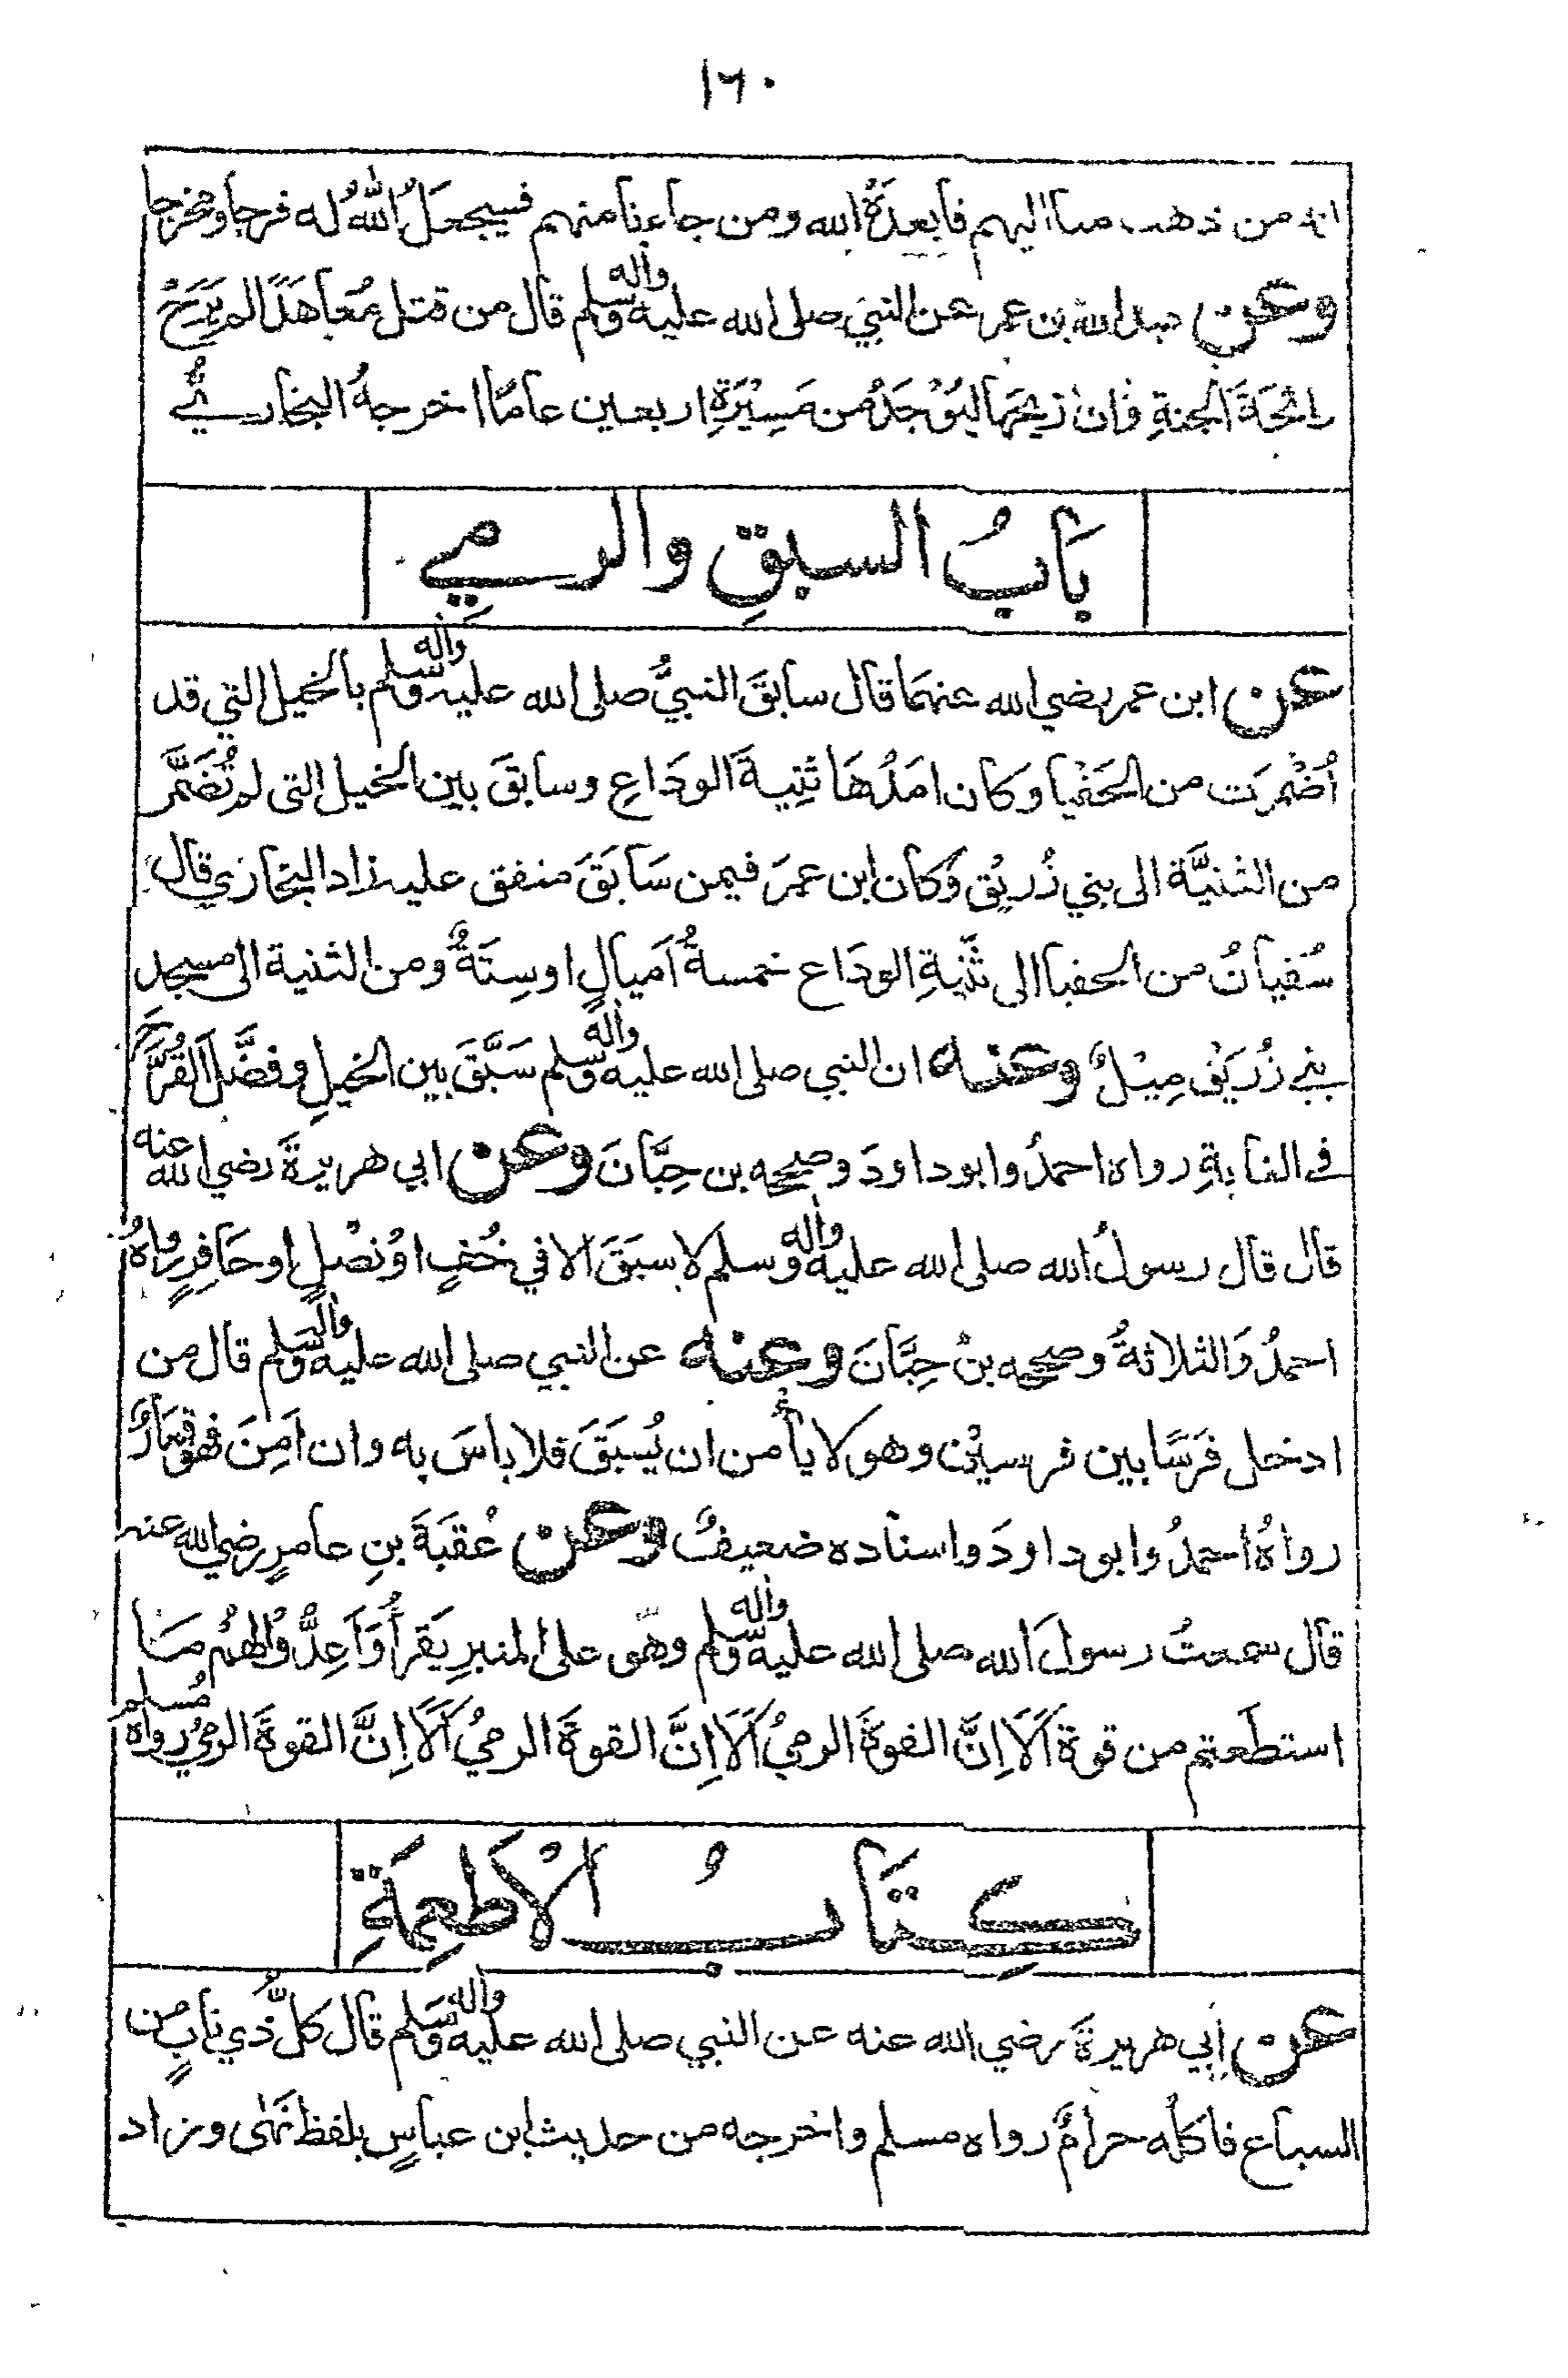 ١٦٠
انه من ذهب منا اليهم فابعدَهُ الله ومن جاءنا منهم فسيجعلُ اللهُ له فرجا ومخرجا
وعن عبد الله بن عمر عن النبي صلى الله عليه واٰله وسلم قال من قتل مُعاهَدًا لم يَرَحْ
رائحَةَ الجنةِ فان ريحَها ليُوْجَدُ من مَسِيْرَةِ اربعين عامًا اخرجهُ البخاريُّ
بَابُ السبقِ والرميِ
عن ابن عمر رضي الله عنهمَا قال سابقَ النبيُّ صلى الله عليه واٰله وسلم بالخيل التي قد
اُضْمِرَت من الحَفْيا وكان امَدُهَا ثنِيةَ الودَاعِ وسابقَ بين الخيل التي لم تُضَمَّر
من الثنيَّة الى بني زُريقٍ وكان ابن عمرَ فيمن سَابَقَ متفق عليه زاد البخاري قال
سُفيانُ من الحفيا الى ثَنيةِ الودَاع خمسةُ اَميالٍ او سِتَةٌ ومن الثنية الى مسجد
بني زُرَيقٍ مِيْلٌ وعنه ان النبي صلى الله عليه واٰله وسلم سَبَّقَ بين الخيلِ وفضَّل القُرَّحَ
في الغايةِ رواه احمدُ وابو داودَ وصححه بن حِبَّانَ وعن ابي هريرةَ رضي الله عنه
قال قال رسولُ الله صلى الله عليه واٰله وسلم لا سبَقَ الا في خُفٍ اوْ نصْلٍ او حَافِرٍ رواهُ
احمدُ وَالثلاثةُ وصححه بنْ حِبَّانَ وعنه عن النبي صلى الله عليه واٰله وسلم قال من
ادخل فَرَسًا بين فرسيْن وهو لا يأمن ان يُسبَقَ فلا باسَ به وان اَمِنَ فهو قِمَارٌ
رواهُ احمدُ وابو داودَ واسناده ضعيفٌ وعن عُقبَةَ بنِ عامرٍ رضي الله عنه
قال سمعتُ رسولَ الله صلى الله عليه واٰله وسلم وهو على المنبرِ يَقرأُ وَاَعِدُّوْا لهُم مَا
استطَعتم من قوة اَلَا اِنَّ القوةَ الرميُ اَلَا اِنَّ القوةَ الرميُ اَلَا اِنَّ القوةَ الرميُ رواه مُسلم
كِتَابُ الْاَطعِمَةِ
عن ابي هريرةَ رضي الله عنه عن النبي صلى الله عليه واٰله وسلم قال كلُّ ذي نابٍ من
السباع فاكلُه حرامٌ رواه مسلم واخرجه من حديث ابن عباسٍ بلفظ نَهٰى وزاد